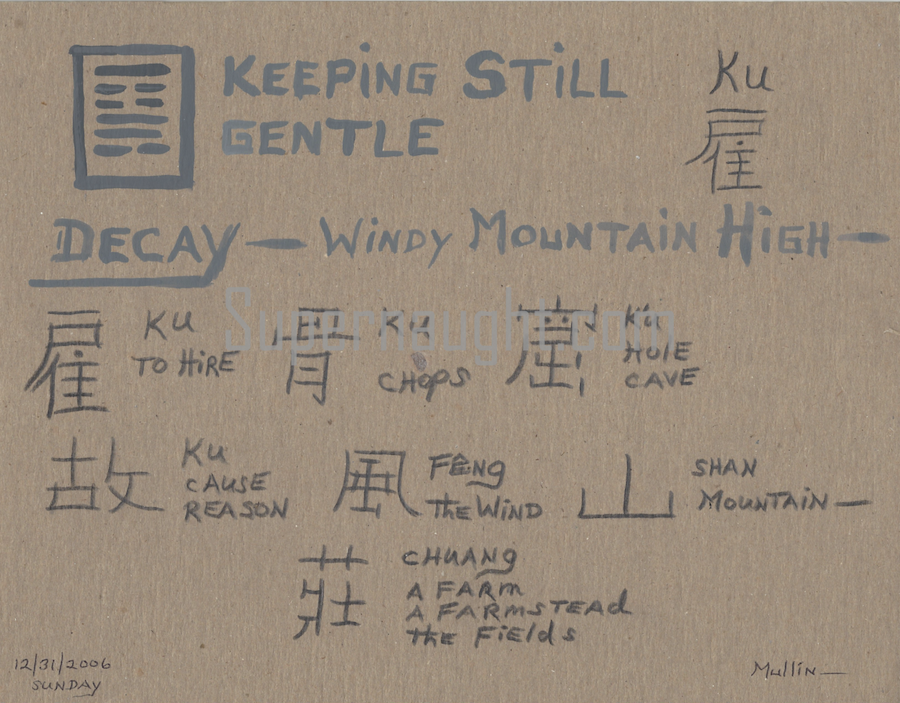 KEEPING STILL
GENTLE
KU
雇
DECAY — WINDY MOUNTAIN HIGH —
Supernaught.com
雇 KU
TO HIRE
骨 KU
CHOPS
窟 KU
HOLE
CAVE
故 KU
CAUSE
REASON
風 FÊNG
THE WIND
山 SHAN
MOUNTAIN —
莊 CHUANG
A FARM
A FARMSTEAD
THE FIELDS
12/31/2006
SUNDAY
Mullin —